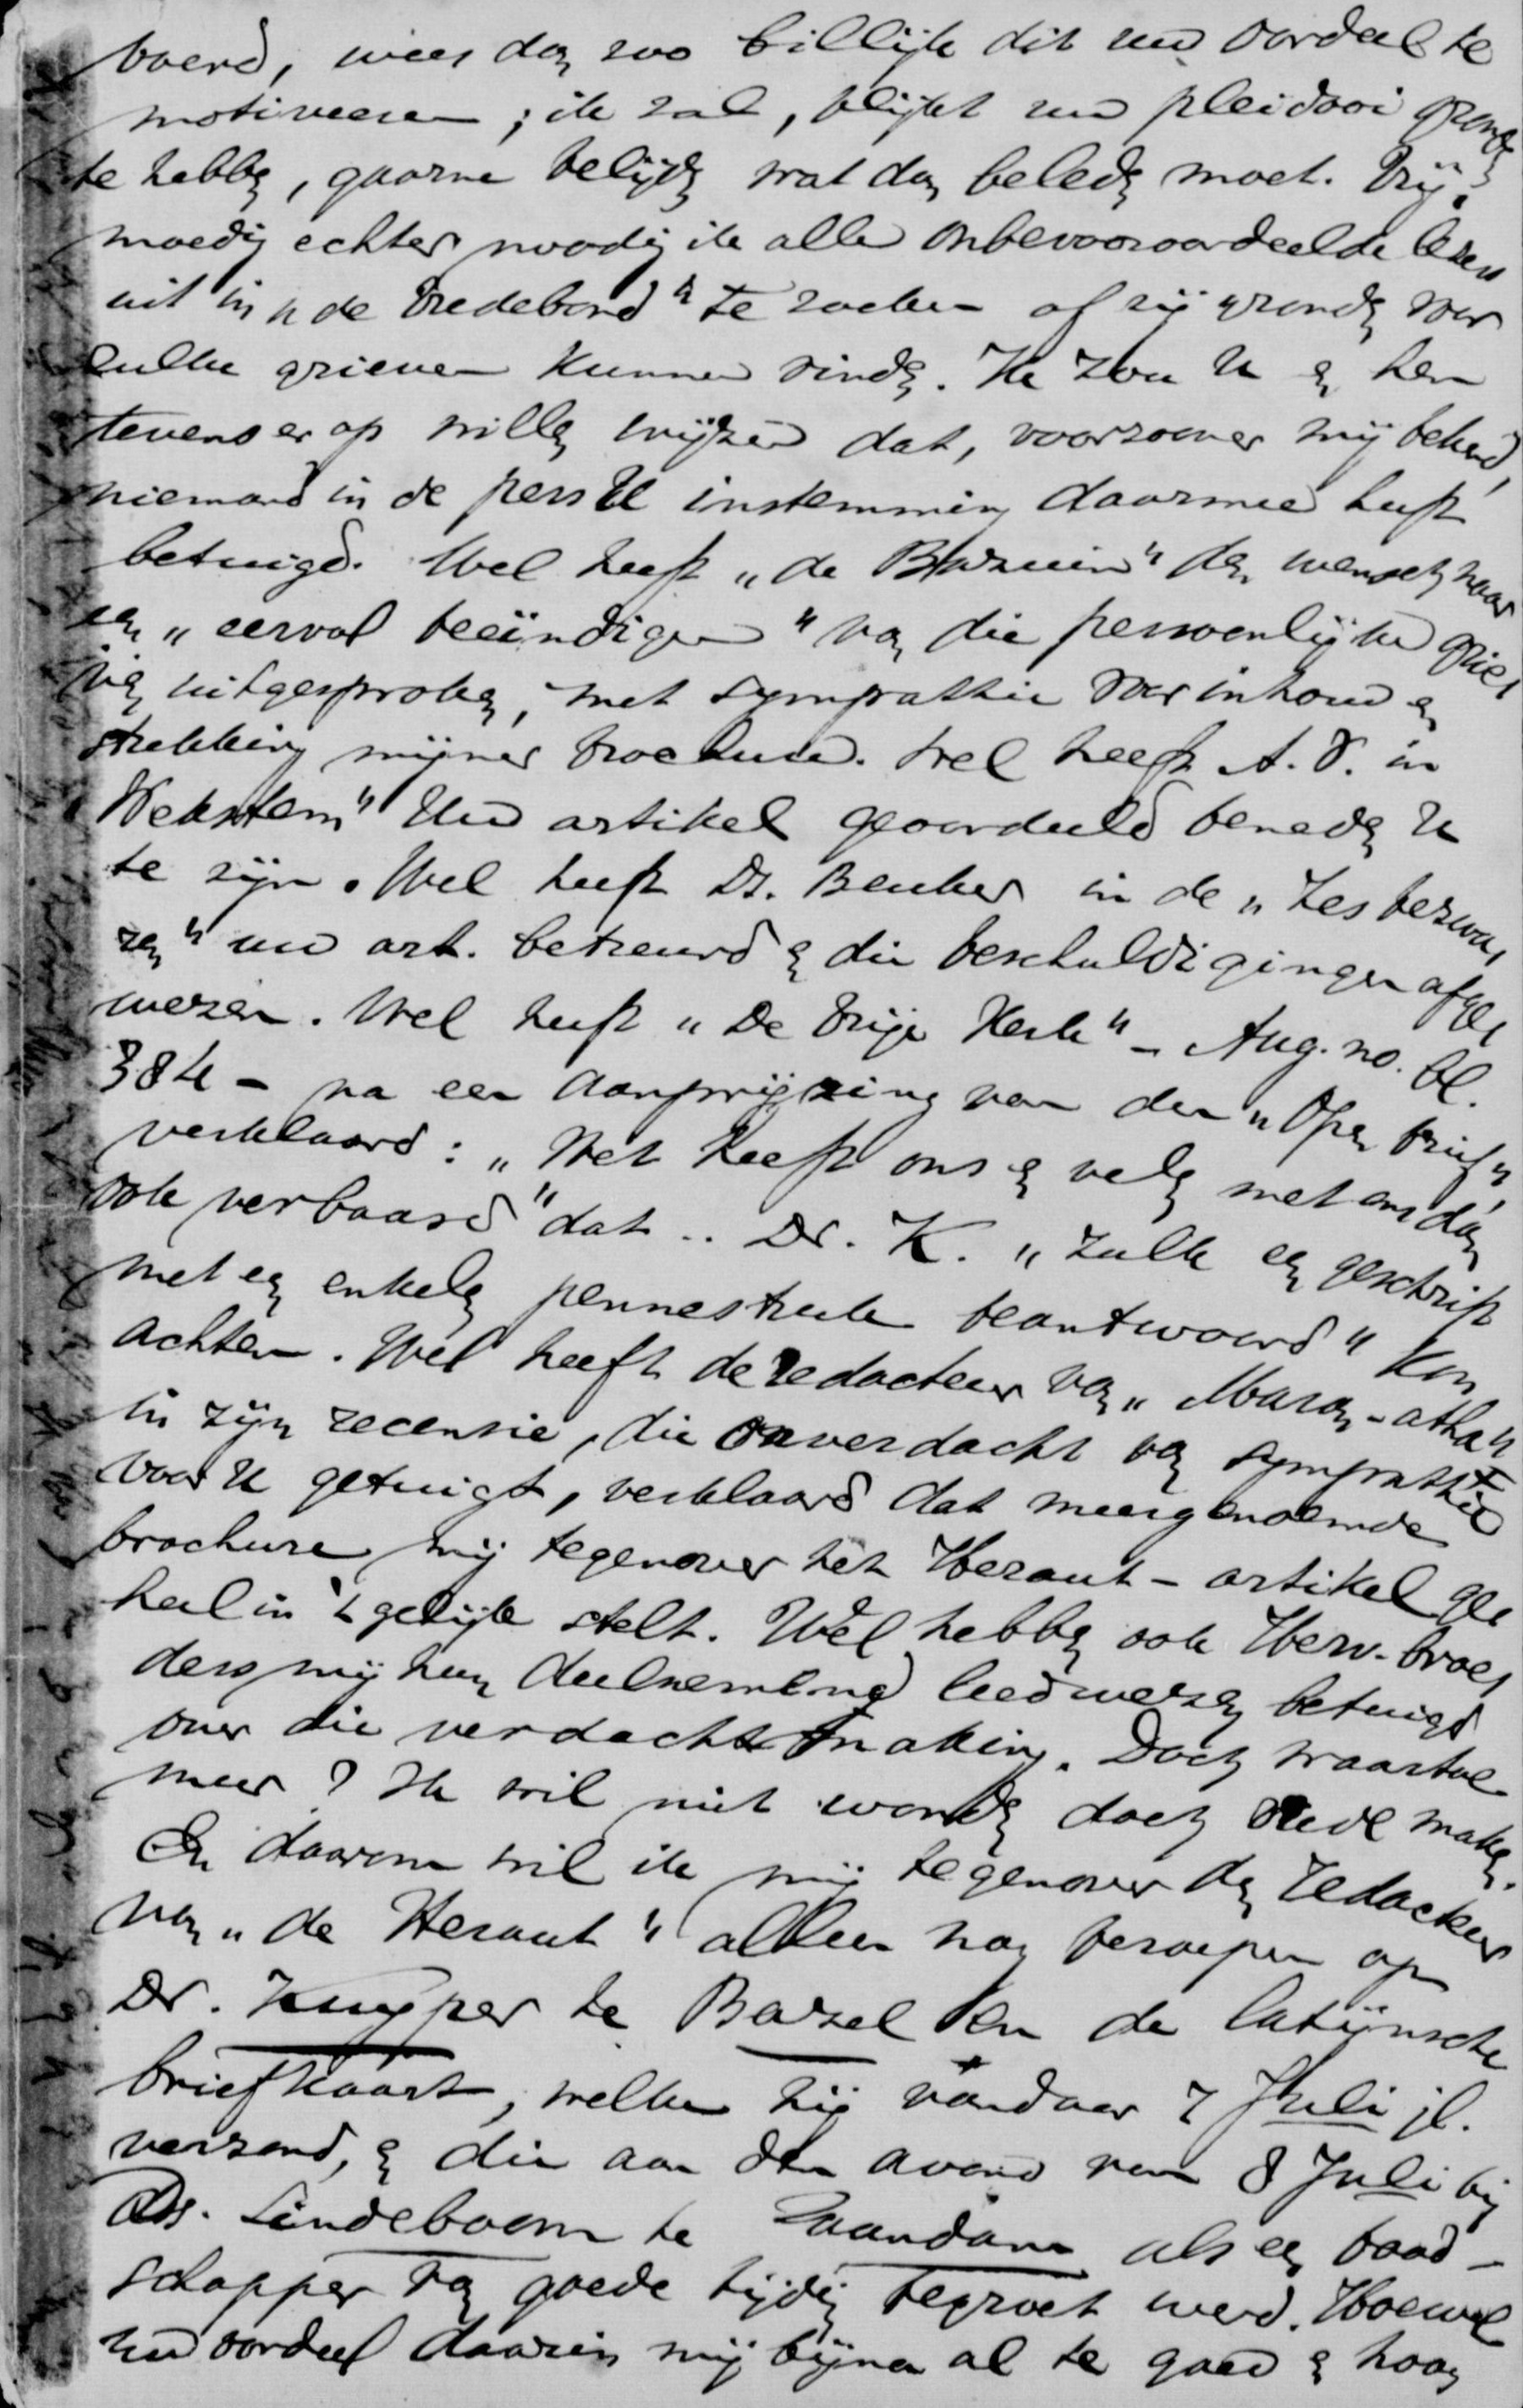 voerd, wees dan zoo billijk dit uw oordeel te
motiveeren; ik zal, blijkt uw pleidooi grond
te hebben, gaarne belijden wat dan beleden moet. Vrij-
moedig echter noodig ik alle onbevooroordeelde lezers
uit in „de Vredebond" te zoeken of zij gronden voor
zulke grieven kunnen vinden. Ik zou U en hen
tevens er op willen wijzen dat, voorzoover mij bekend,
niemand in de pers U instemming daarmee heeft
betuigd. Wel heeft „de Bazuin" den wensch naar
een „eervol beëindigen" van die persoonlijke grie-
ven uitgesproken, met sympathie voor inhoud en
strekking mijner brochure. Wel heeft A. V. in
Wekstem" Uw artikel geoordeeld beneden U
te zijn. Wel heeft Ds. Beuker in de „Zes bezwa-
ren" uw art. betreurd en die beschuldigingen afge-
wezen. Wel heeft „De Vrije Kerk" - Aug. no. bl.
384 - na een aanprijzing van den „Open brief"
verklaard: „Het heeft ons en velen met ons dan
ook verbaasd" dat .. Dr. K. „zulk een geschrift
met een enkelen pennestreek beantwoord" kon
achten. Wel heeft de redacteur van „Maran-atha"
in zijn recensie, die onverdacht van sympathie
voor U getuigt, verklaard dat meergenoemde
brochure mij tegenover het Heraut-artikel ge-
heel in 't gelijk stelt. Wel hebben ook Herv. broe-
ders mij hun deelnemend leedwezen betuigd
over die verdachtmaking. Doch waartoe
meer? Ik wil niet wonden doch vrede maken.
En daarom wil ik mij tegenover den redacteur
van „de Heraut" alleen nog beroepen op
Dr. Kuyper te Bazel en de latijnsche
briefkaart, welke hij vandaar 7 Juli jl.
verzond, en die aan den avond van 8 Juli bij
Ds. Lindeboom te Zaandam als een bood-
schapper van goede tijding begroet werd. Hoewel
uw oordeel daarin mij bijna al te goed en hoog